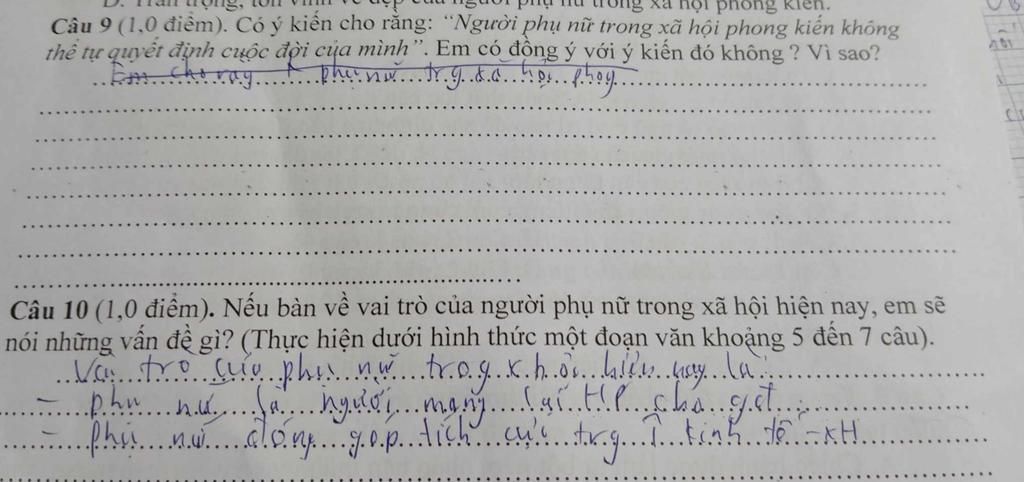 D. Trân trọng, tôn vinh vẻ đẹp của người phụ nữ trong xã hội phong kiến.
Câu 9 (1,0 điểm). Có ý kiến cho rằng: “Người phụ nữ trong xã hội phong kiến không
thể tự quyết định cuộc đời của mình”. Em có đồng ý với ý kiến đó không ? Vì sao?
Em cho rằg phụ nữ trg xã hội phog
Câu 10 (1,0 điểm). Nếu bàn về vai trò của người phụ nữ trong xã hội hiện nay, em sẽ
nói những vấn đề gì? (Thực hiện dưới hình thức một đoạn văn khoảng 5 đến 7 câu).
Vai trò của phụ nữ trog x.hội hiện nay là:
- phụ nữ là người mang lại HP cho gđ
- Phụ nữ đóng góp tích cực trg kinh tế - XH